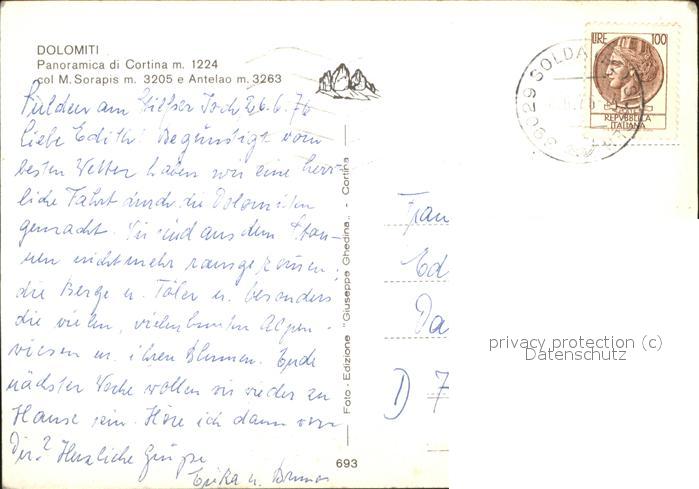 DOLOMITI
Panoramica di Cortina m. 1224
col M. Sorapis m. 3205 e Antelao m. 3263
Sulden am Stilfser Joch 26.6.76
liebe Edith! Begünstigt vom
besten Wetter haben wir eine herr-
liche Fahrt durch die Dolomiten
gemacht. Wir sind aus dem Stau-
nen nicht mehr rausgekommen;
die Berge u. Täler u. besonders
die vielen, vielen bunten Alpen-
wiesen m. ihren Blumen. Ende
nächster Woche wollen wir wieder zu
Hause sein. Höre ich dann von
Dir? Herzliche Grüße
Erika u. Bruno
Foto - Edizione "Giuseppe Ghedina" - Cortina
693
LIRE 100
REPVBBLICA
ITALIANA
39029 SOLDA
Frau
Ed
Da
D 7
privacy protection (c)
Datenschutz